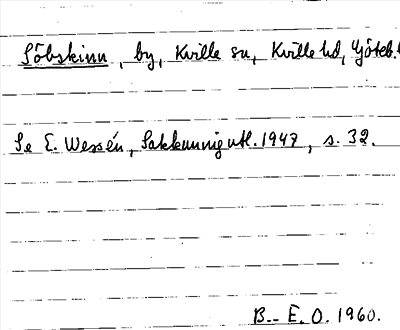 Söbskinn, by, Kville sn, Kville hd, Göteb.
Se E. Wessén, Sakkunnigutl. 1947, s. 32.
B. - E. O. 1960.